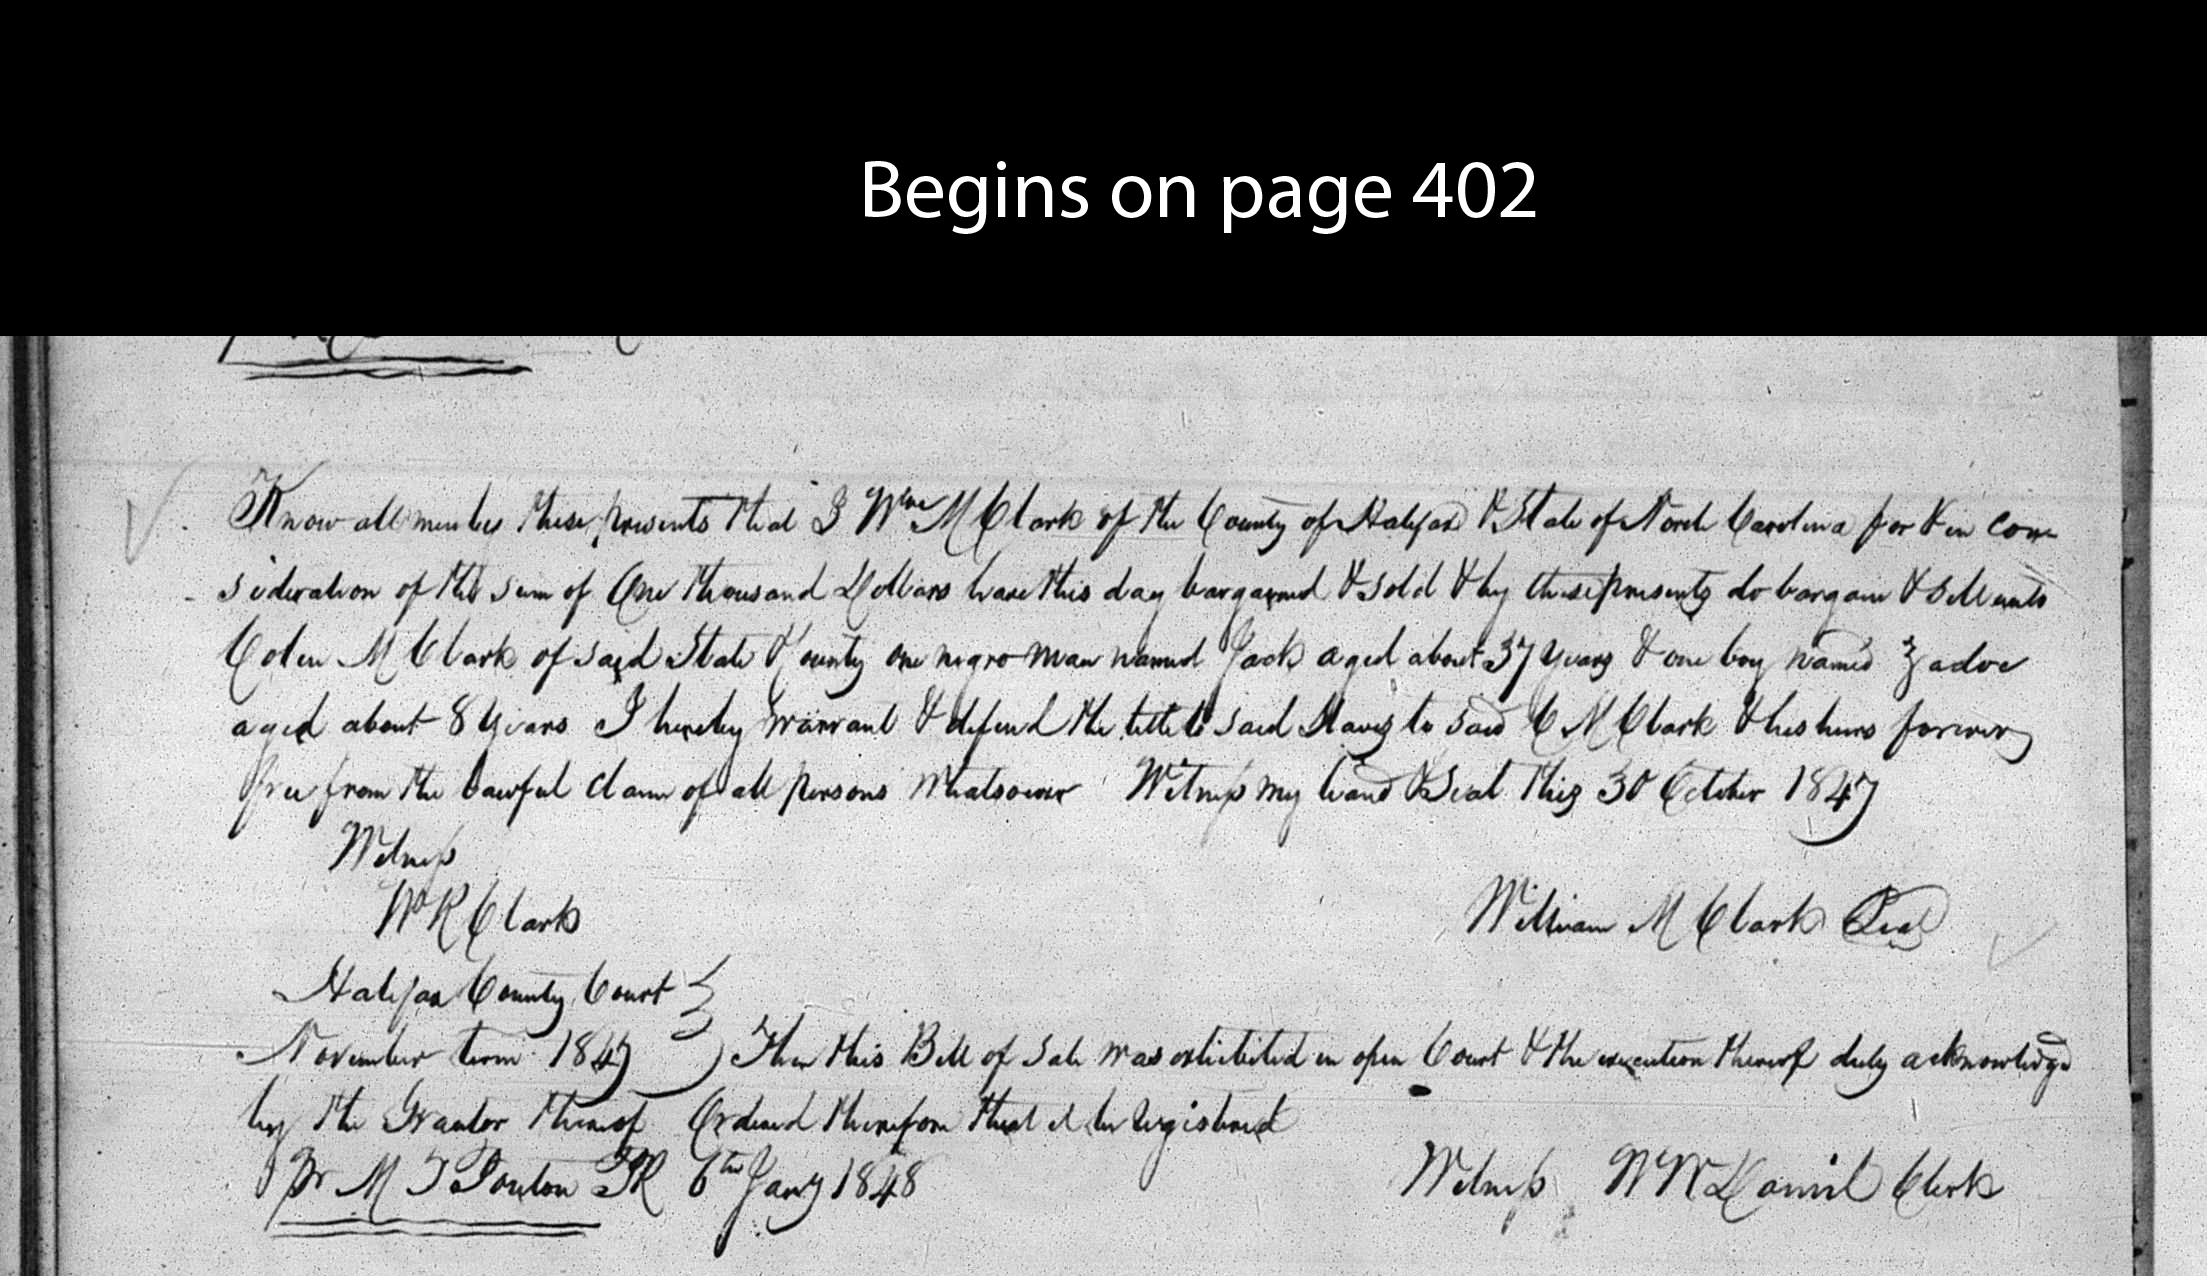 Begins on page 402
Know all men by these presents that I Wm M Clark of the County of Halifax & State of North Carolina for & in con-
sideration of the sum of One thousand Dollars have this day bargained & sold & by these presents do bargain & sell unto
Colin M Clark of said State & County one negro man named Jack aged about 37 years & one boy named Zadoc
aged about 8 years I hereby warrant & defend the title to said Slaves to said C M Clark & his heirs forever
free from the lawful claim of all persons whatsoever Witness my hand & Seal this 30 October 1847
Witness
Wm R Clark
William M Clark Seal
Halifax County Court
November term 1847 Then this Bill of sale was exhibited in open Court & the execution thereof duly acknowledge
by the Grantor thereof Ordered therefore that it be registered
Pr M T Ponton PR 6th Jany 1848
Witness W W Daniel Clerk